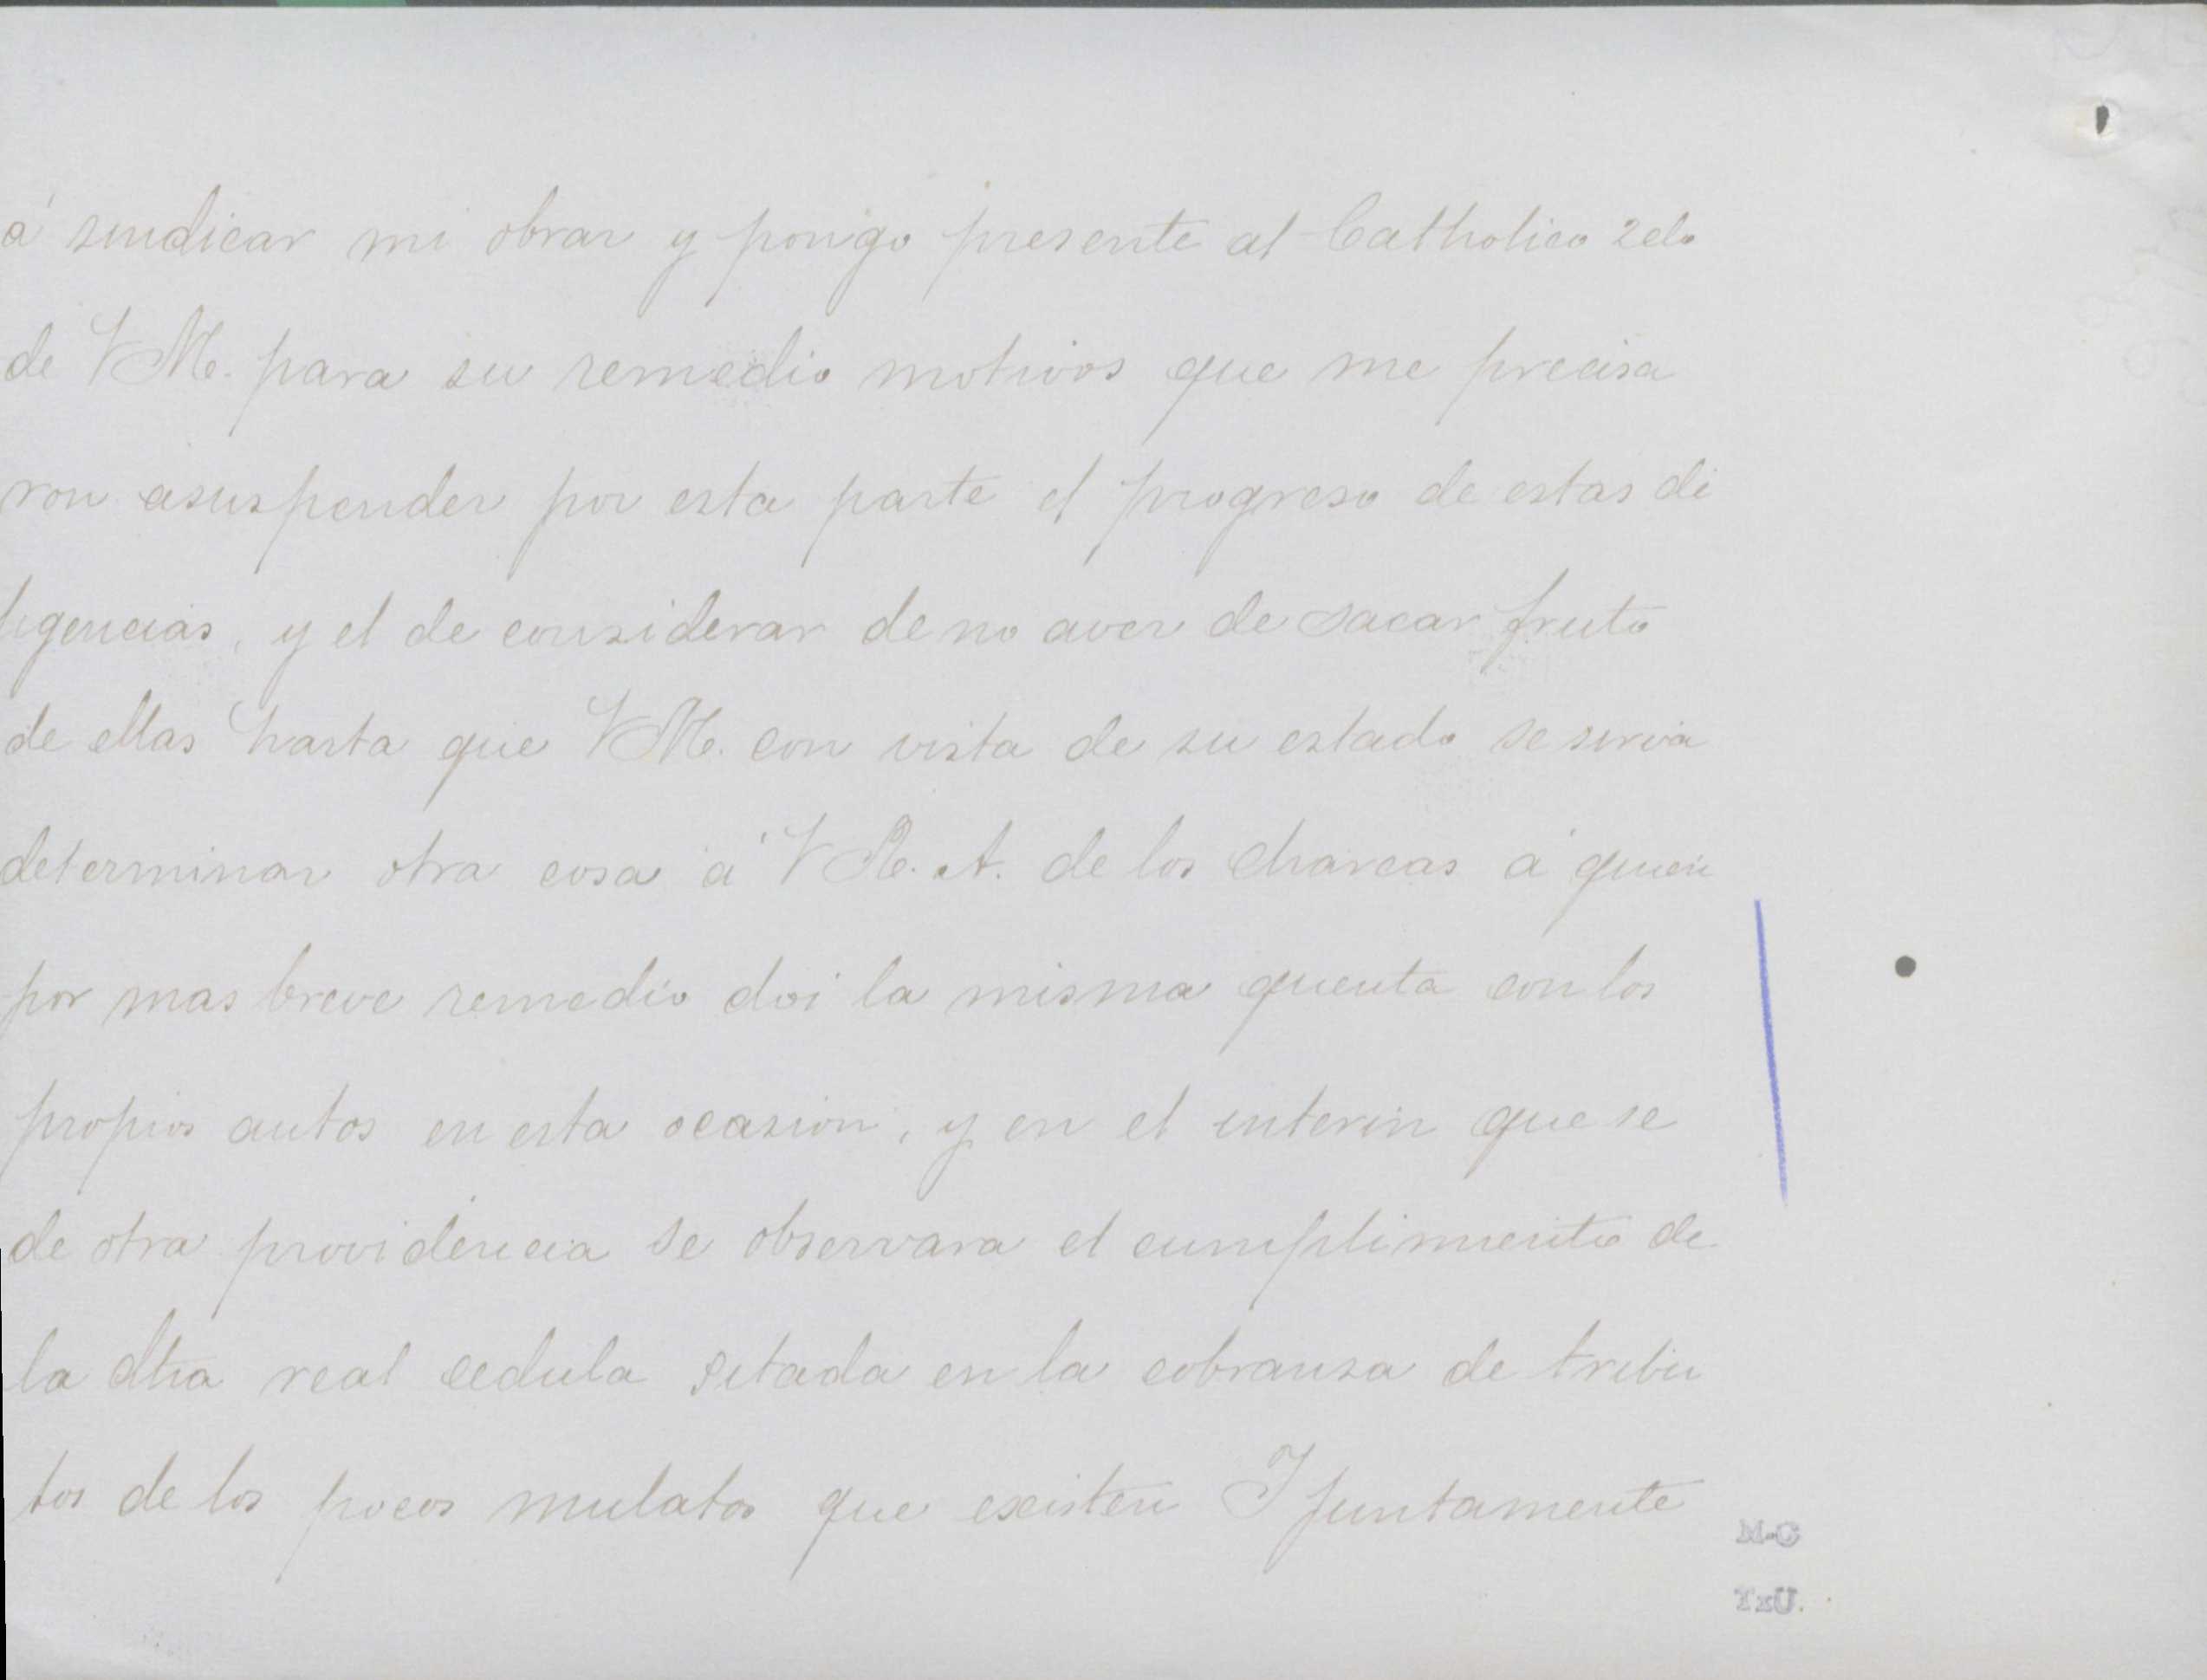 á sindicar mi obrar y pongo presente al Catholico zelo
de VM. para su remedio motivos que me precisa
ron asuspender por esta parte el progreso de estas di
ligencias, y el de considerar de no aver de sacar fruto
de ellas hasta que VM. con vista de su estado se sirva
determinar otra cosa á VR. A. de los charcas á quien
por mas breve remedio doi la misma quenta con los
propios autos en esta ocasion, y en el interin que se
de otra providencia se observara el cumplimiento de
la dha real cedula sitada en la cobransa de tribu
tos de los pocos mulatos que existen Y juntamente
M-C
TxU.